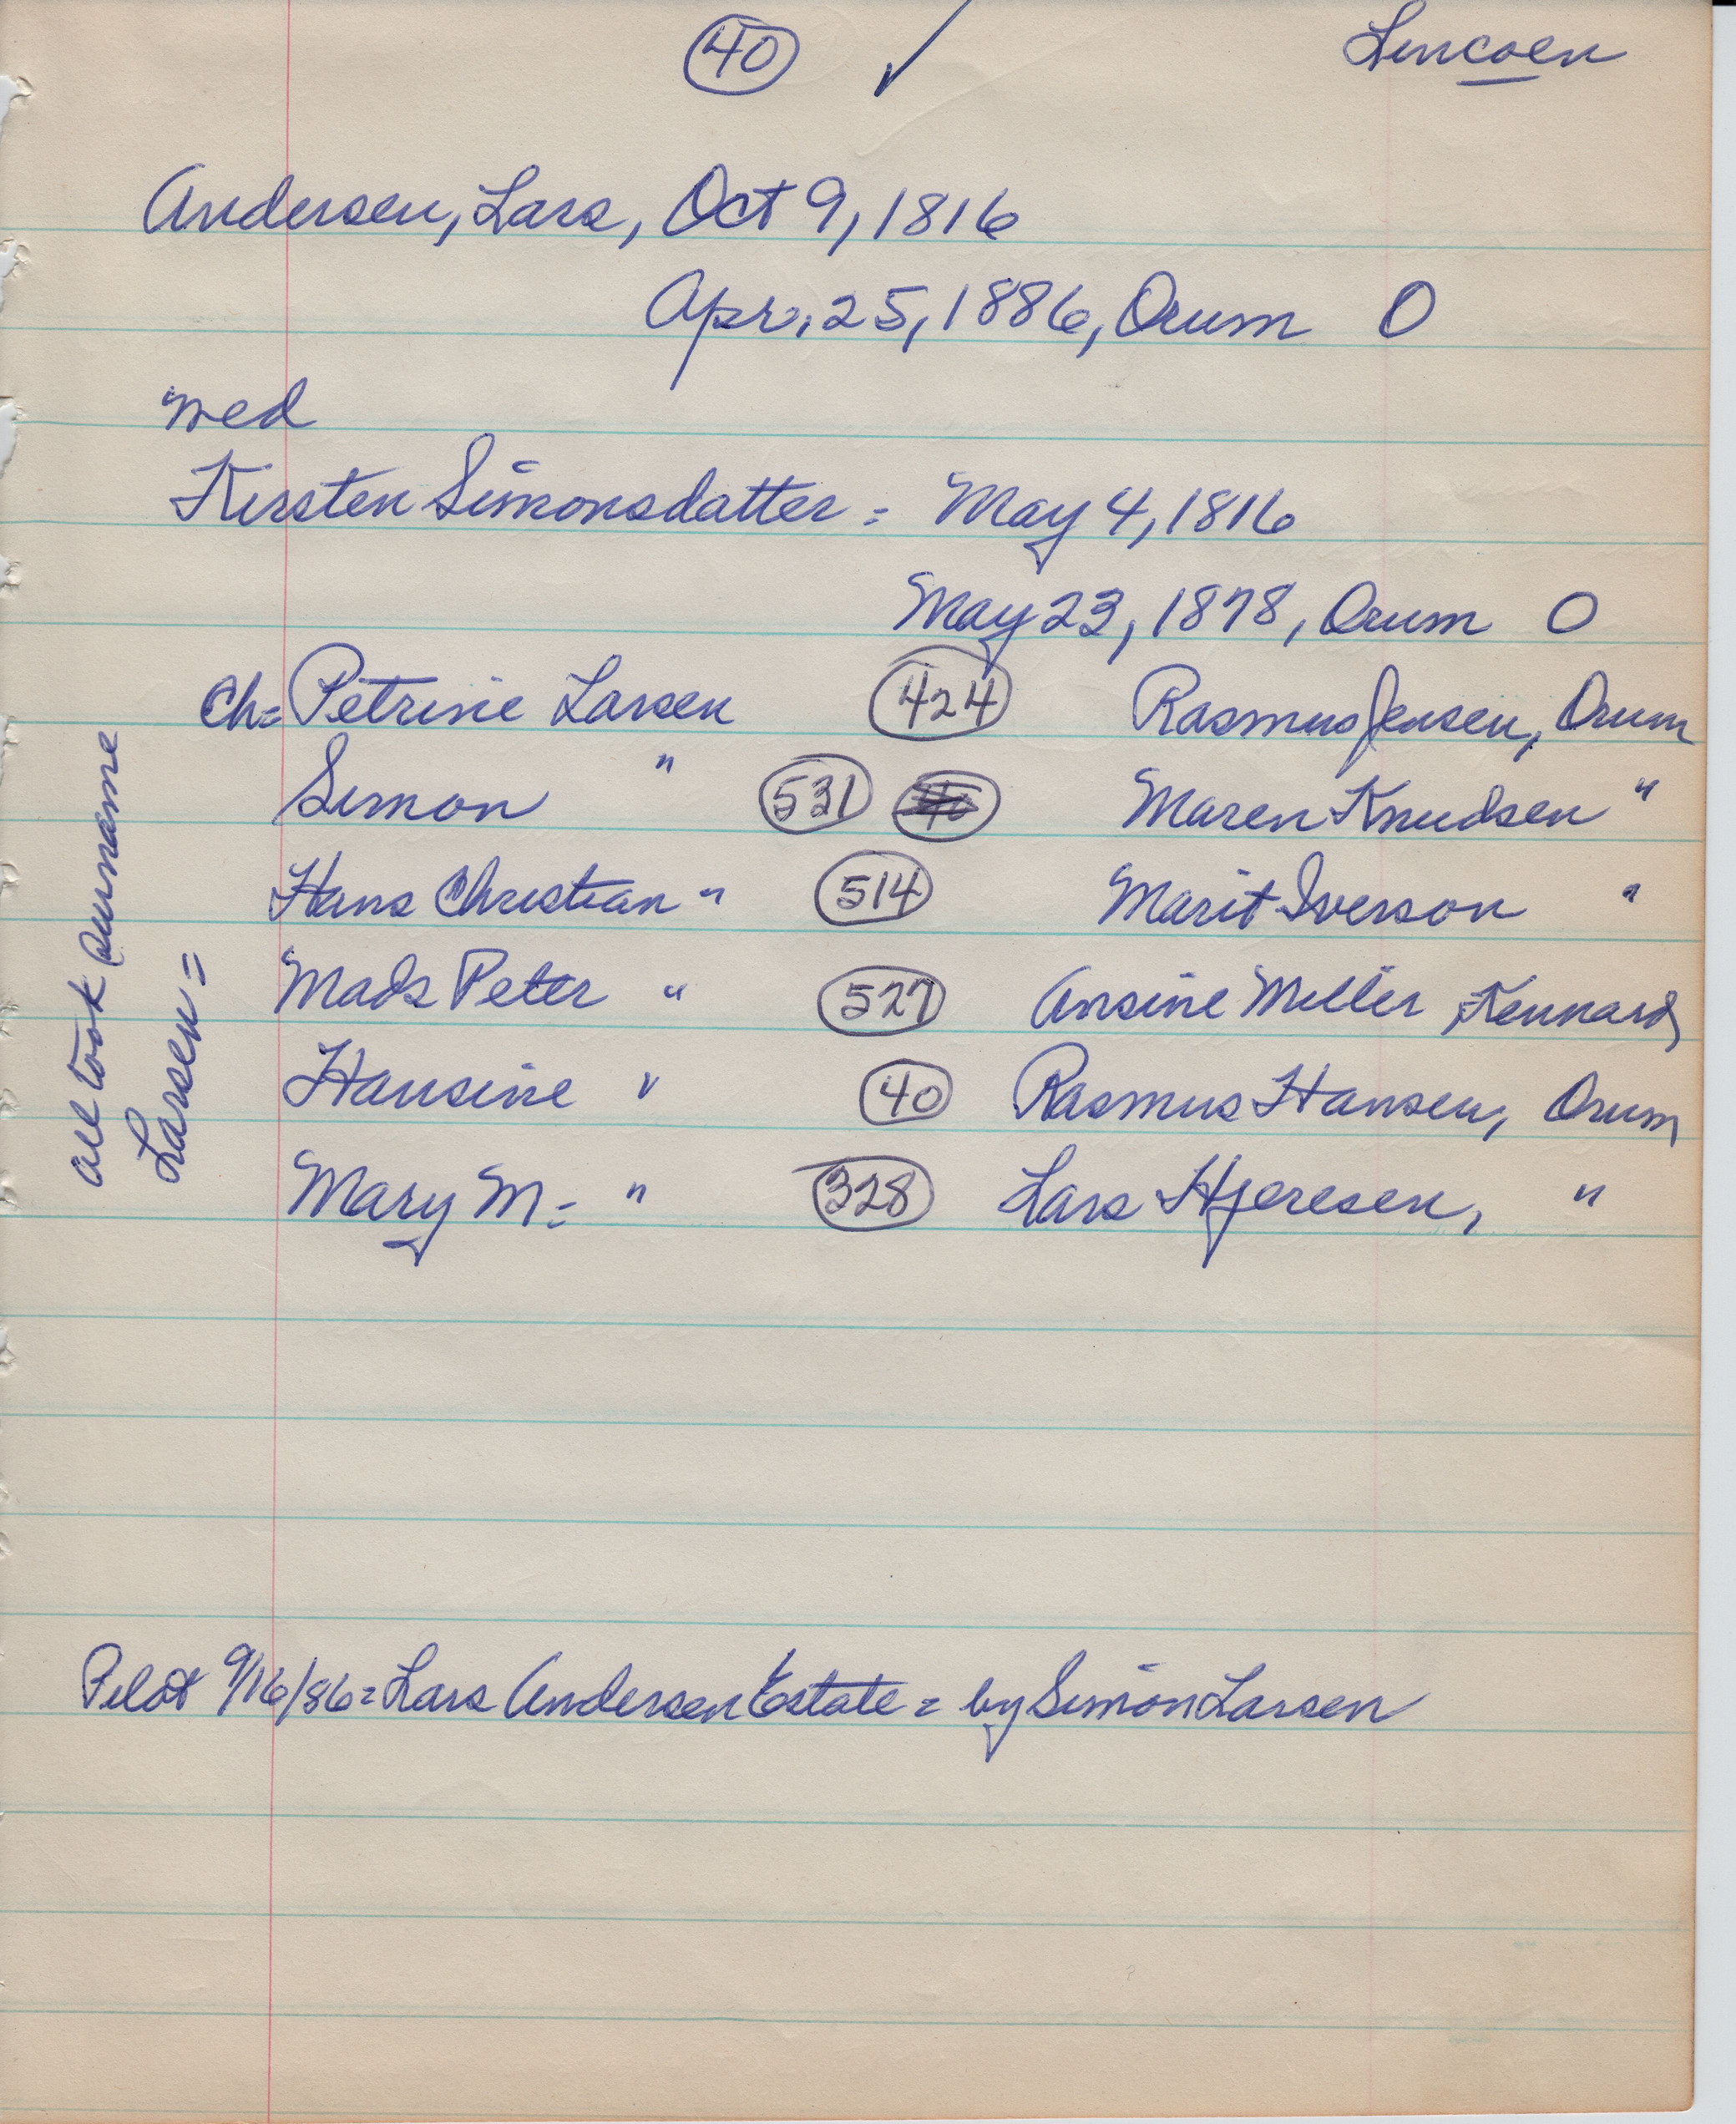 40 ✓ Lincoln
Andersen, Lars, Oct 9, 1816
Apr. 25, 1886, Orum O
wed
Kirsten Simonsdatter = May 4, 1816
May 23, 1878, Orum O
Ch= Petrine Larsen 424 Rasmus Jensen, Orum
Simon " 531 Maren Knudsen "
Hans Christian " 514 Marit Iverson "
Mads Peter " 527 Ansine Miller, Kennard
Hansine " 40 Rasmus Hansen, Orum
Mary M= " 328 Lars Hjeresen, "
all took surname
Larsen=
Pilot 9/16/86= Lars Andersen Estate = by Simon Larsen